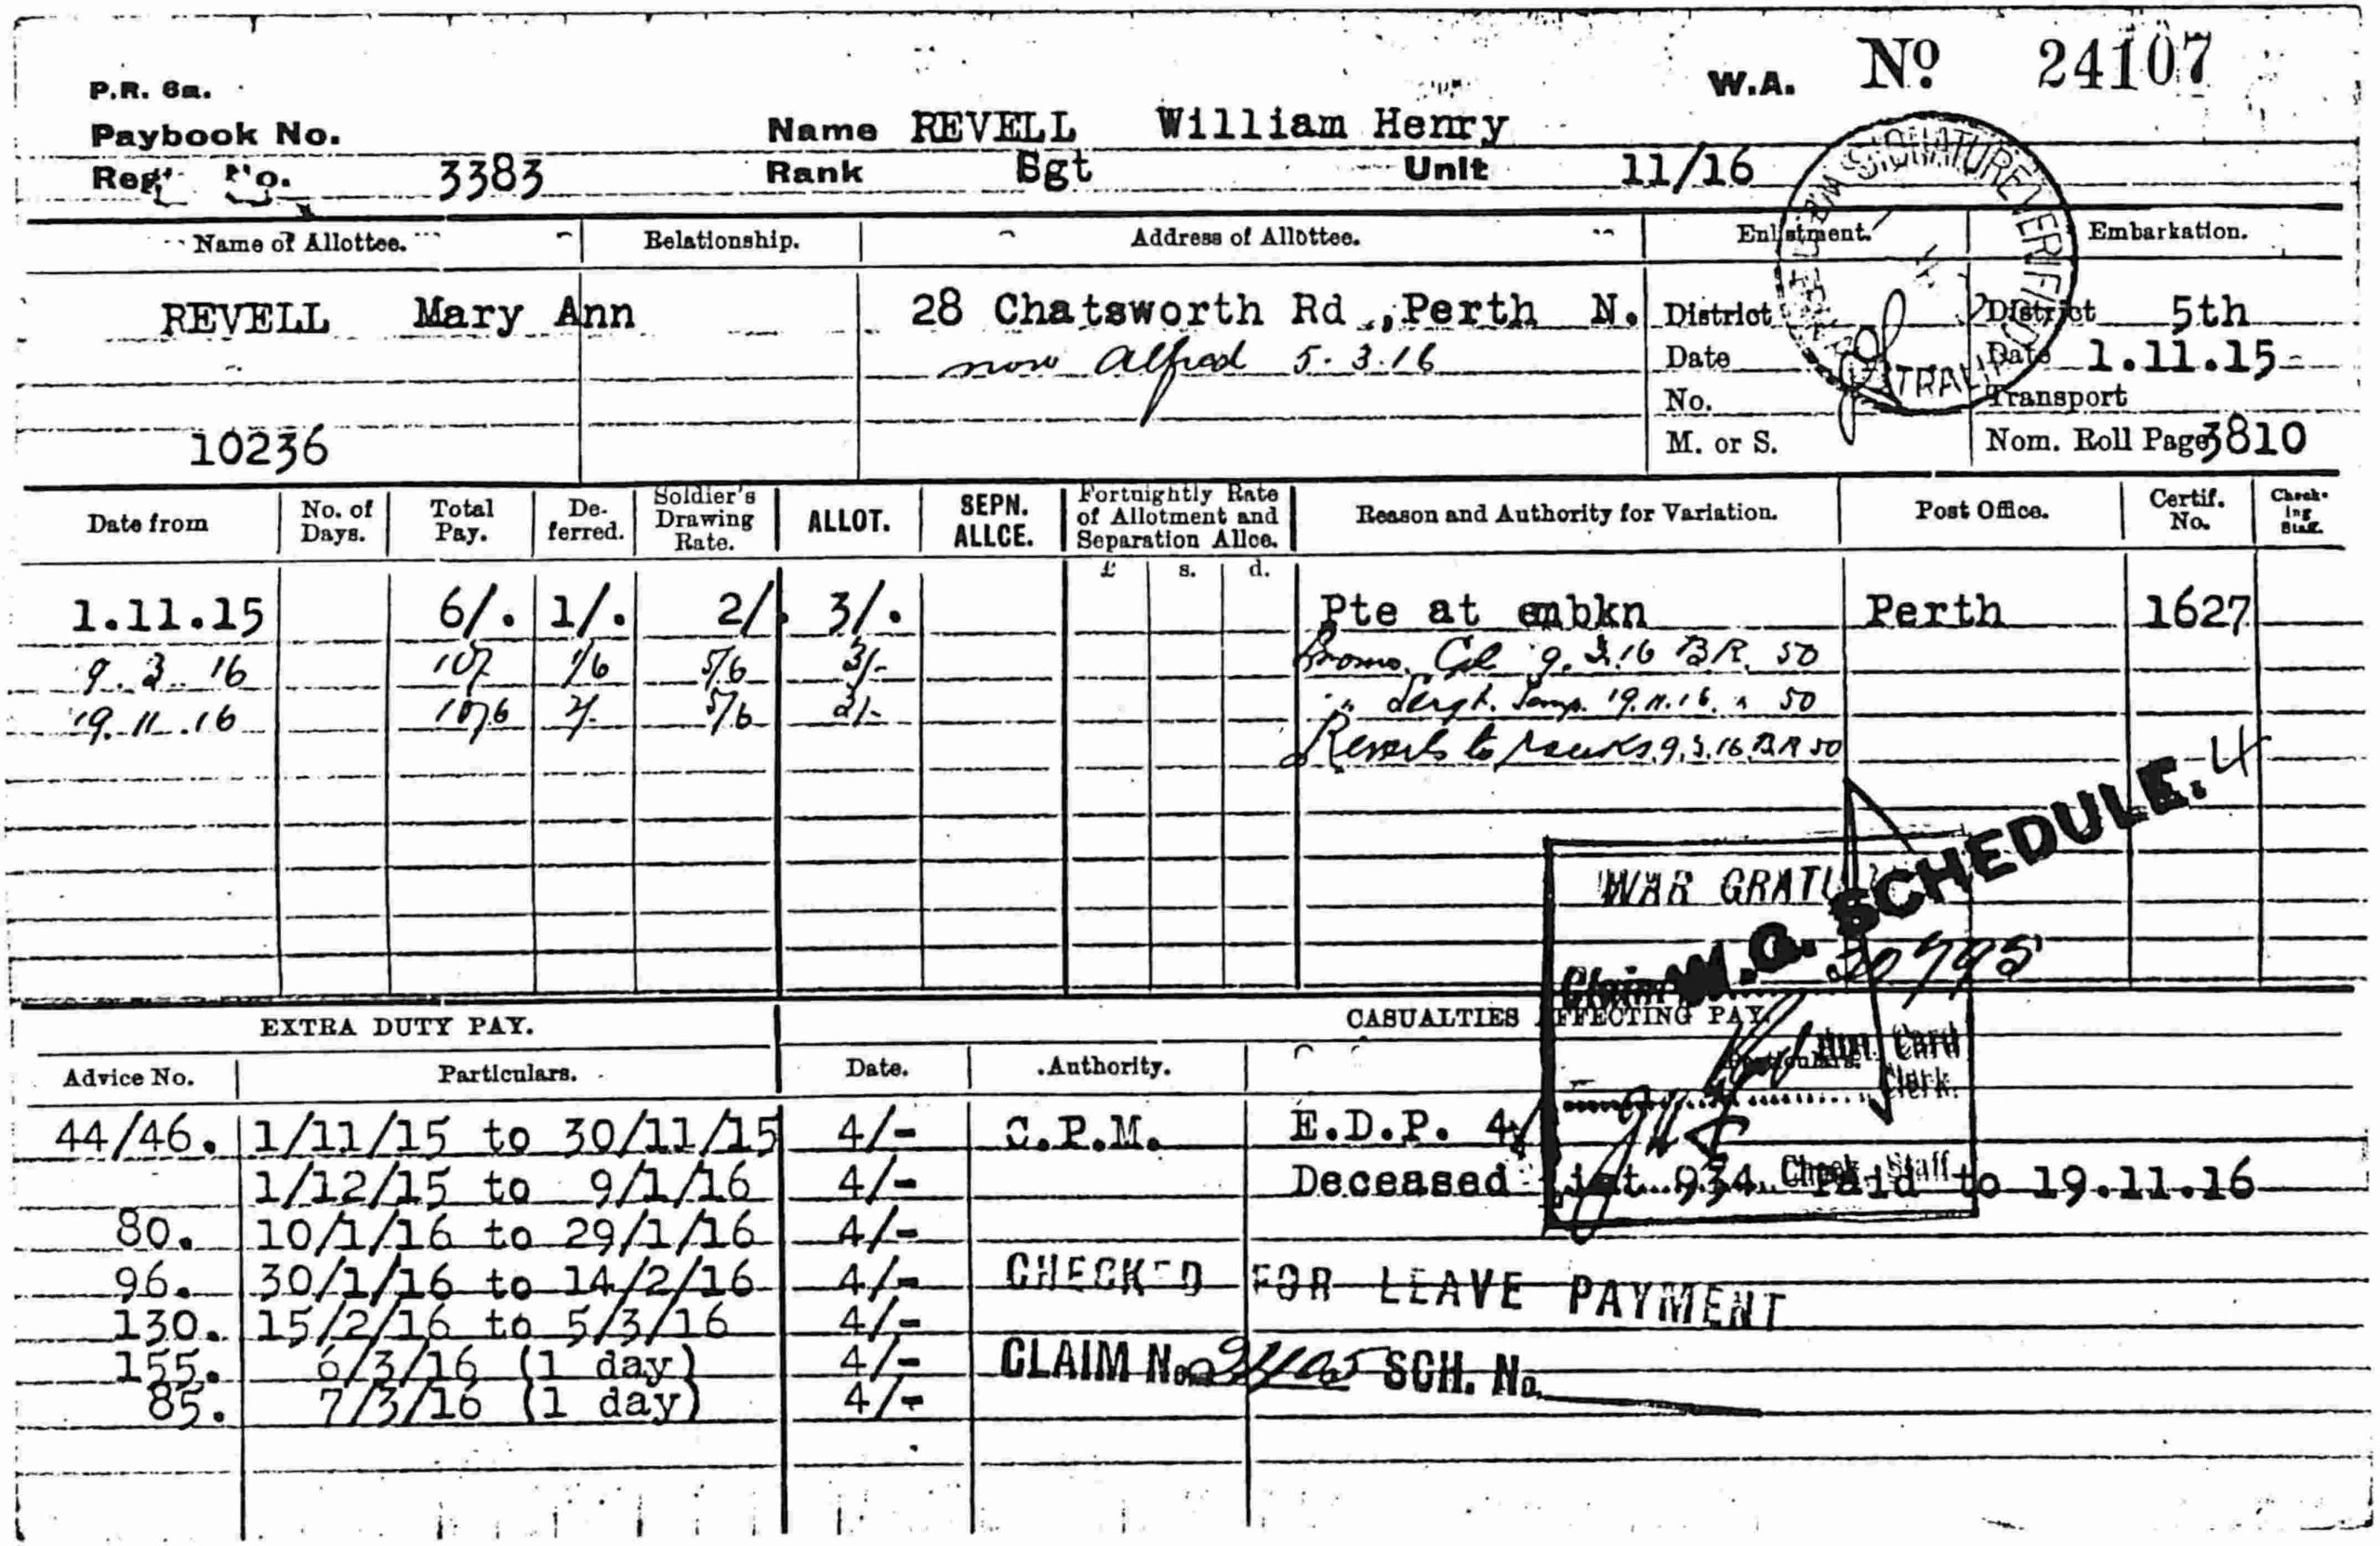 P.R. 6a. W.A. No 24107
Paybook No. Name REVELL William Henry
Regt No. 3383 Rank Sgt Unit 11/16
Name of Allottee. Relationship. Address of Allottee. Enlistment. Embarkation.
REVELL Mary Ann 28 Chatsworth Rd.,Perth N. District District 5th
now Alfred 5.3.16 Date Date 1.11.15
No. Transport
10236 M. or S. Nom. Roll Page 3810
SIGNATURE VERIFIED
Date from No. of Days. Total Pay. De-ferred. Soldier's Drawing Rate. ALLOT. SEPN. ALLCE. Fortnightly Rate of Allotment and Separation Allce. Reason and Authority for Variation. Post Office. Certif. No. Check-ing Staff.
£ s. d.
1.11.15 6/. 1/. 2/. 3/. Pte at embkn Perth 1627
9.3.16 10/ 1/6 5/6 3/- Promo. Cpl 9.3.16 B.R. 50
19.11.16 10/6 2/- 5/6 3/- " Sergt. Temp. 19.11.16. " 50
Reverts to ranks 9.3.16 B.R 50
W.G. SCHEDULE. 4
WAR GRATU
Claim 30795
EXTRA DUTY PAY. CASUALTIES AFFECTING PAY.
Advice No. Particulars. Date. Authority. Particulars.
Card
Clerk.
44/46. 1/11/15 to 30/11/15 4/- C.P.M. E.D.P. 4/
1/12/15 to 9/1/16 4/- Deceased List 934 Paid to 19.11.16
Check Staff
80. 10/1/16 to 29/1/16 4/-
96. 30/1/16 to 14/2/16 4/- CHECKED FOR LEAVE PAYMENT
130. 15/2/16 to 5/3/16 4/-
155. 6/3/16 (1 day) 4/- CLAIM No. SCH. No.
85. 7/3/16 (1 day) 4/-